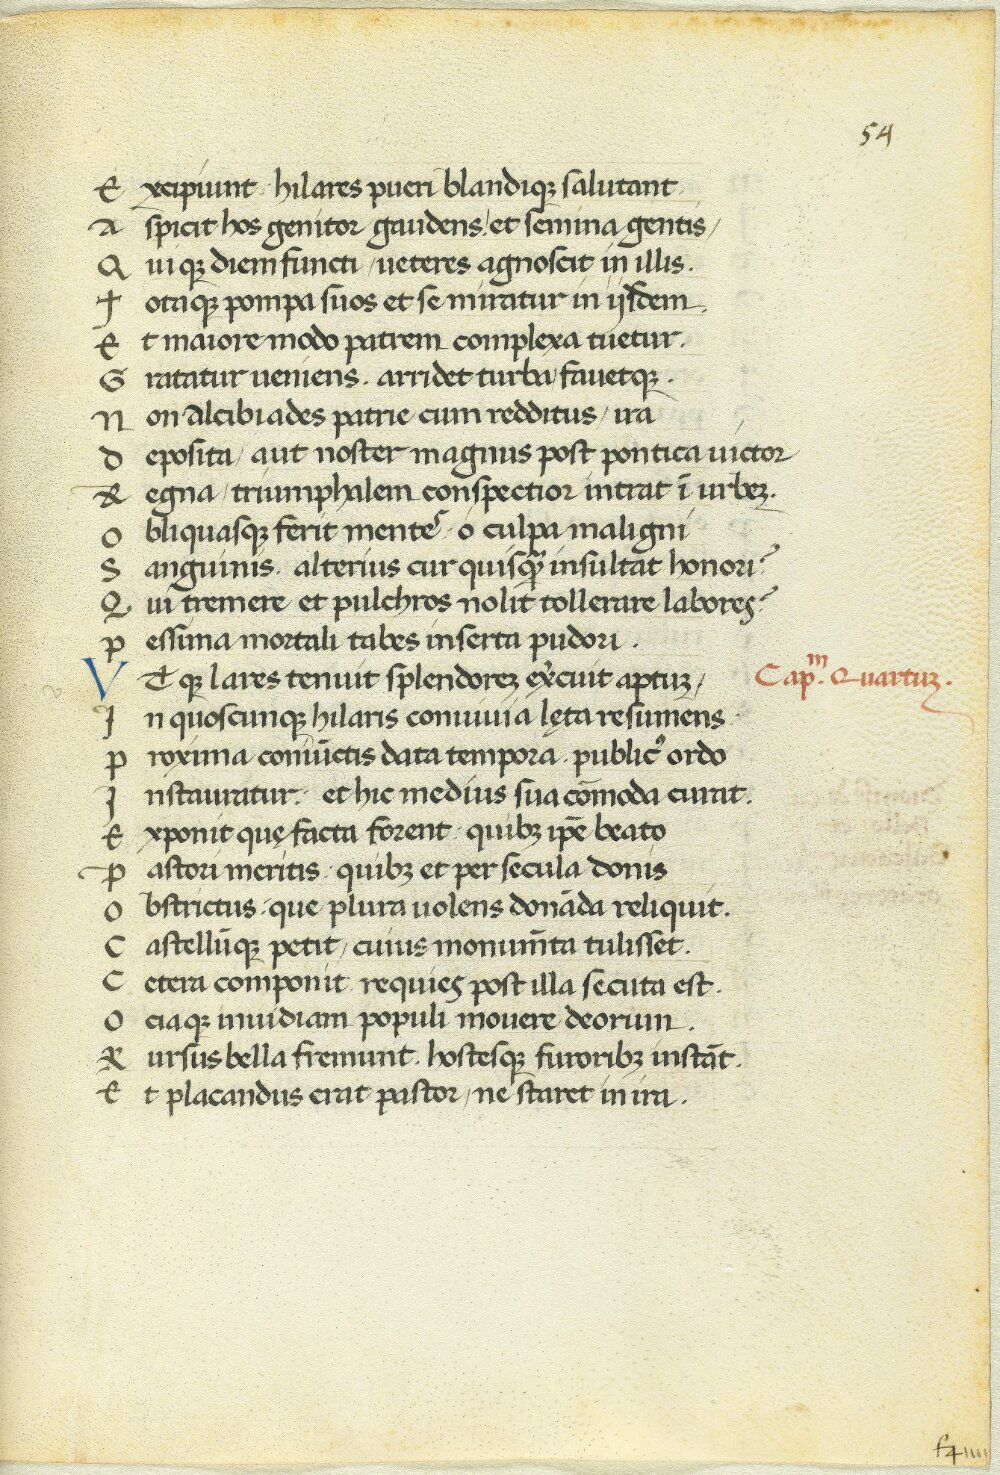 54
Excipiunt · hilares pueri blandiqꝫ salutant.
Aspicit hos genitor gaudens / et semina gentis /
Quiqꝫ diem functi / ueteres agnoscit in illis.
Totaqꝫ pompa suos et se miratur in ijsdem.
Et maiore modo patrem complexa tuetur.
Gratatur ueniens . arridet turba fauetqꝫ .
Non Alcibiades patrie cum redditus / ira
Deposita / aut noster magnus post pontica uictor
Regna / triumphalem conspectior intrat ī urbeꝫ.
Obliquasqꝫ ferit mentes · o culpa maligni
Sanguinis . alterius cur quisqꝫ̃ insultat honori?
Qui tremere et pulchros nolit tollerare labores?
Pessima mortali tabes inserta pudori .
VT qꝫ lares tenuit splendoreꝫ exuit aptuꝫ /
Cap.ᵐ Quartuꝫ .
In quoscunqꝫ hilaris conuiuia lęta resumens ·
Proxima coniūctis data tempora · publicꝰ ordo
Instauratur . et hic medius sua cōmoda curat.
Exponit quę facta forent · quibꝫ ip̄e beato
Pastori meritis · quibꝫ et per secula donis
Obstrictus · que plura uolens donāda reliquit.
Castellūqꝫ petit / cuius monum̄ta tulisset.
Cetera componit · requies post illa secuta est .
Ociaqꝫ inuidiam populi mouere deorum .
Rursus bella fremunt . hostesqꝫ furoribꝫ instāt.
Et placandus erat pastor / ne staret in ira .
f4 IIII